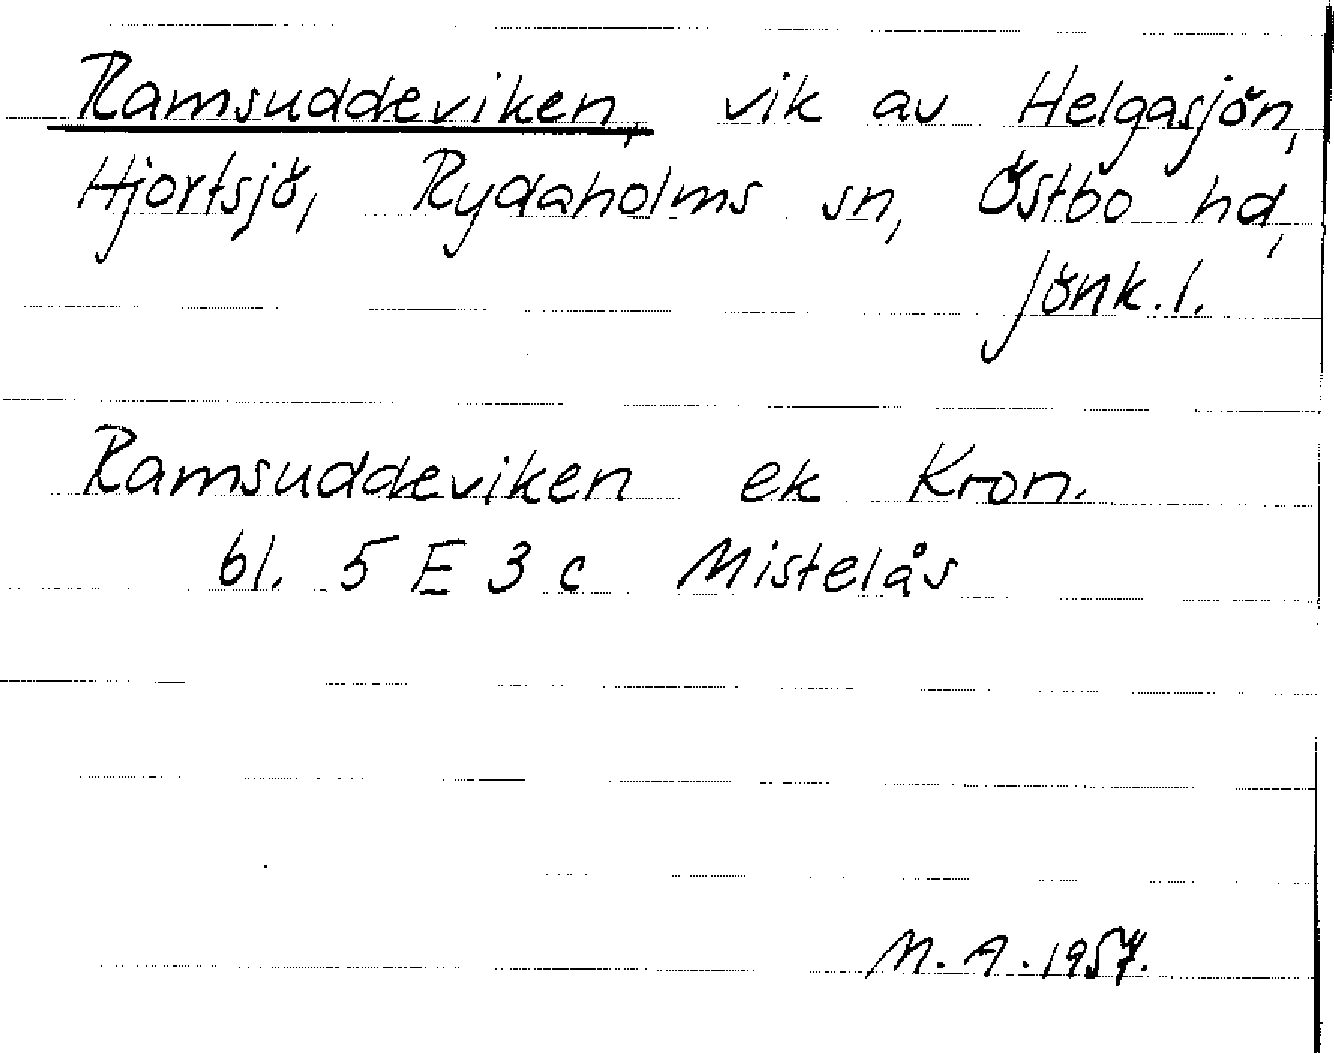 Ramsuddeviken, vik av Helgasjön,
Hjortsjö, Rydaholms sn, Östbo hd,
Jönk. l.
Ramsuddeviken ek Kron.
bl. 5 E 3 c Mistelås
M. A. 1957.